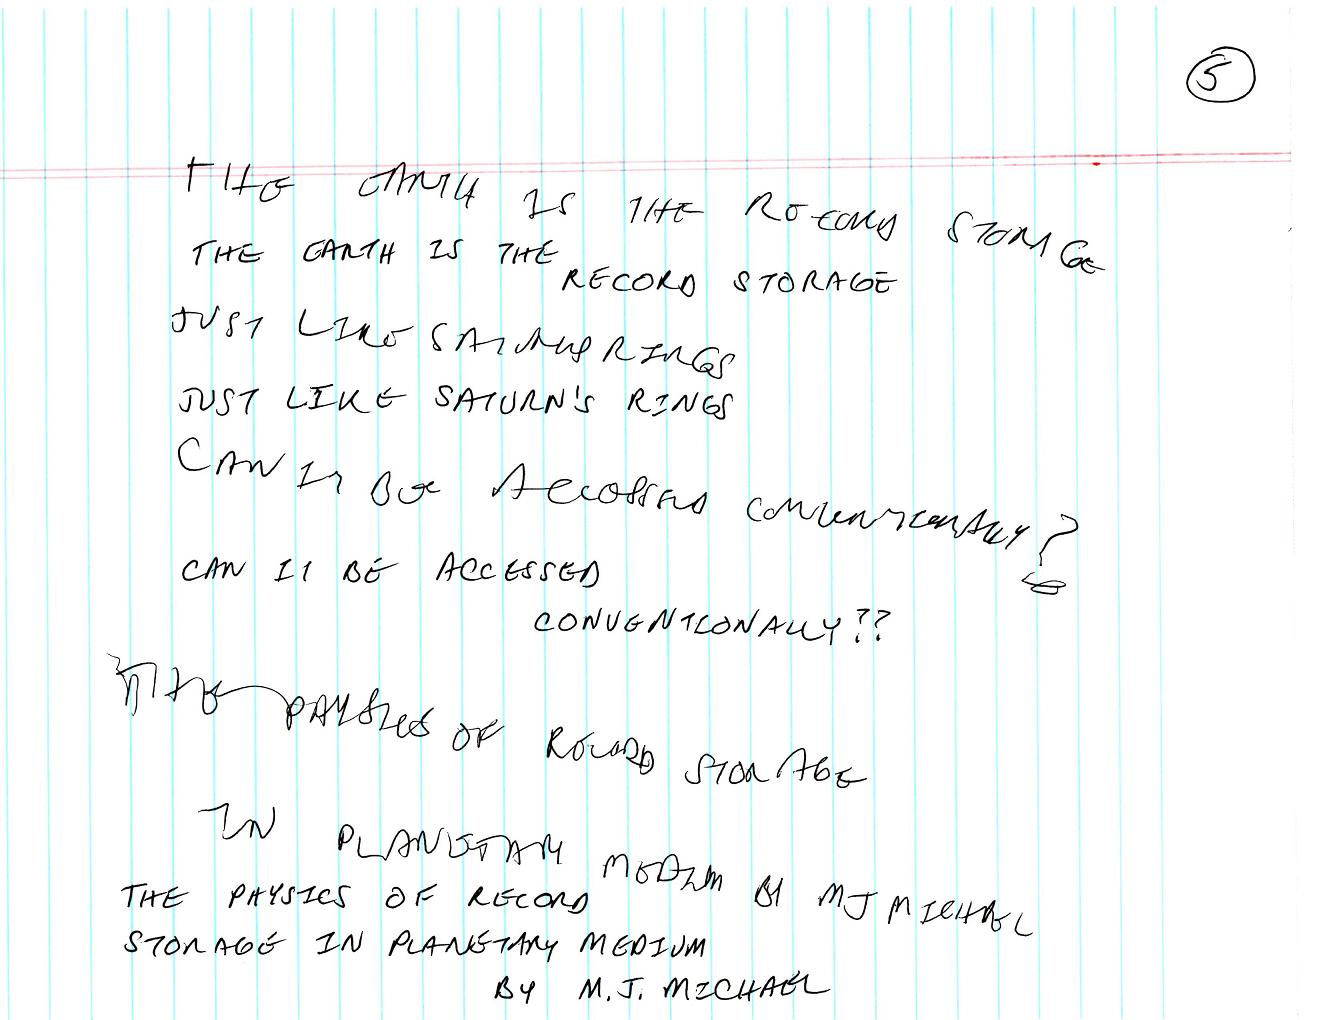 5
THE EARTH IS THE RECORD STORAGE
THE EARTH IS THE
RECORD STORAGE
JUST LIKE SATURNS RINGS
JUST LIKE SATURN'S RINGS
CAN IT BE ACCESSED CONVENTIONALLY?
CAN IT BE ACCESSED
CONVENTIONALLY??
THE PHYSICS OF RECORD STORAGE
IN PLANETARY MEDIUM BY MJ MICHAEL
THE PHYSICS OF RECORD
STORAGE IN PLANETARY MEDIUM
BY M.J. MICHAEL